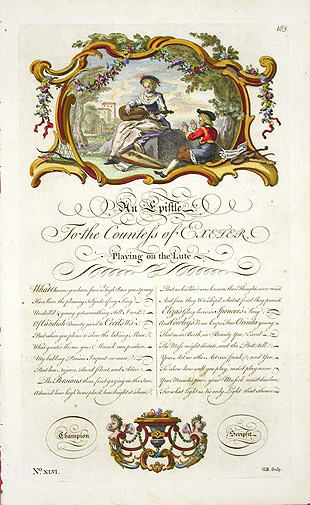 185
An Epistle
To the Countess of EXETER
Playing on the Lute
What charms you have, from what high Race you sprung
Have been the pleasing Subjects of my Song
Unskill'd & young, yet something still I writ
Of Ca'ndish beauty join'd to Cecil's Wit
But when you please to show the lab'ring Muse
What greater theme your Musick can produce
My babling Praises I repeat no more
But hear, rejoice, stand silent, and Adore
The Persians thus, first gazing on the Sun
Admir'd how high 'twas plac'd, how bright it shone
But as his Pow'r was known, their Thoughts were rais'd
And soon they Worship'd, what at first they prais'd
Eliza's Glory lives in Spencer's Song
And Cowley's Verse keeps Fair Orinda young
That as in Birth, in Beauty You Excel
The Muse might dictate, and the Poet tell
Your Art no other Art can speak; and You
To show how well you play, must play anew
Your Musick's pow'r your Musick must disclose
For what Light is, 'tis only Light that shows
Champion
Scripsit
No. XLVI.
G.B. Sculp.